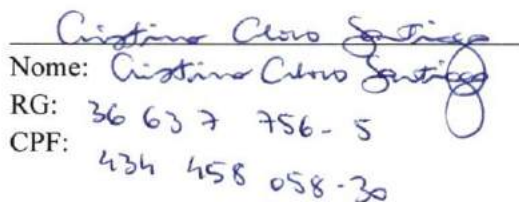 Cristina Cloro Santiago
Nome: Cristina Cloro Santiago
RG: 36 637 756-5
CPF: 434 458 058-30